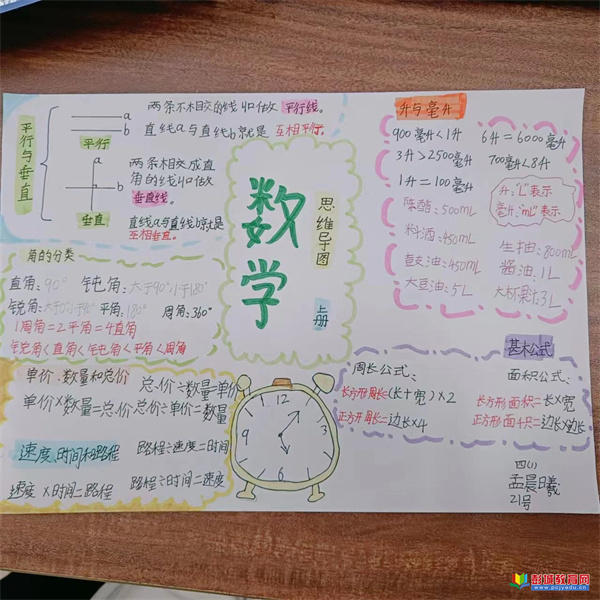 平行与垂直
两条不相交的线叫做平行线。
a
b
平行
直线a与直线b就是互相平行。
a
b
垂直
两条相交成直
角的线叫做
垂直线。
直线a与直线b就是
互相垂直。
角的分类
直角:90° 钝角:大于90°小于180°
锐角:大于0°小于90° 平角:180° 周角:360°
1周角=2平角=4直角
锐角<直角<钝角<平角<周角
数学
思维导图
上册
升与毫升
900毫升<1升 6升=6000毫升
3升>2500毫升 700毫升<8升
1升=100毫升
升:"L"表示
毫升:"mL"表示
陈醋:500mL
料酒:450mL
生抽:800mL
豉油:450mL
酱油:1L
大豆油:5L
3L
单价、数量和总价
总价÷数量=单价
单价×数量=总价 总价÷单价=数量
速度、时间和路程
路程÷速度=时间
速度×时间=路程 路程÷时间=速度
12
3
6
9
基本公式
周长公式:
长方形周长=(长+宽)×2
正方形周长=边长×4
面积公式:
长方形面积=长×宽
正方形面积=边长×边长
四(1)
孟晨曦
21号
彭城教育网
www.pcjyedu.cn